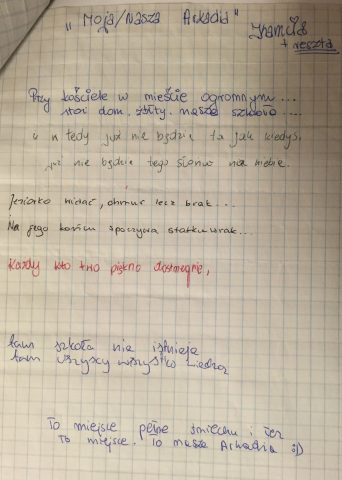 "Moja/Nasza Arkadia"
+ reszta
Przy kościele w mieście ogromnym...
stoi dom, żółty. nasza szkoła...
już nie będzie ta jak kiedyś.
już nie będzie tego na niebie.
jeziorko widać, chmur lecz brak...
Na jego końcu spoczywa statku wrak...
Każdy kto two piękno dostrzegnie,
tam szkoła nie istnieje
tam wszyscy wszystko wiedzą
To miejsce pełne śmiechu i łez
To miejsce. To nasza Arkadia :D